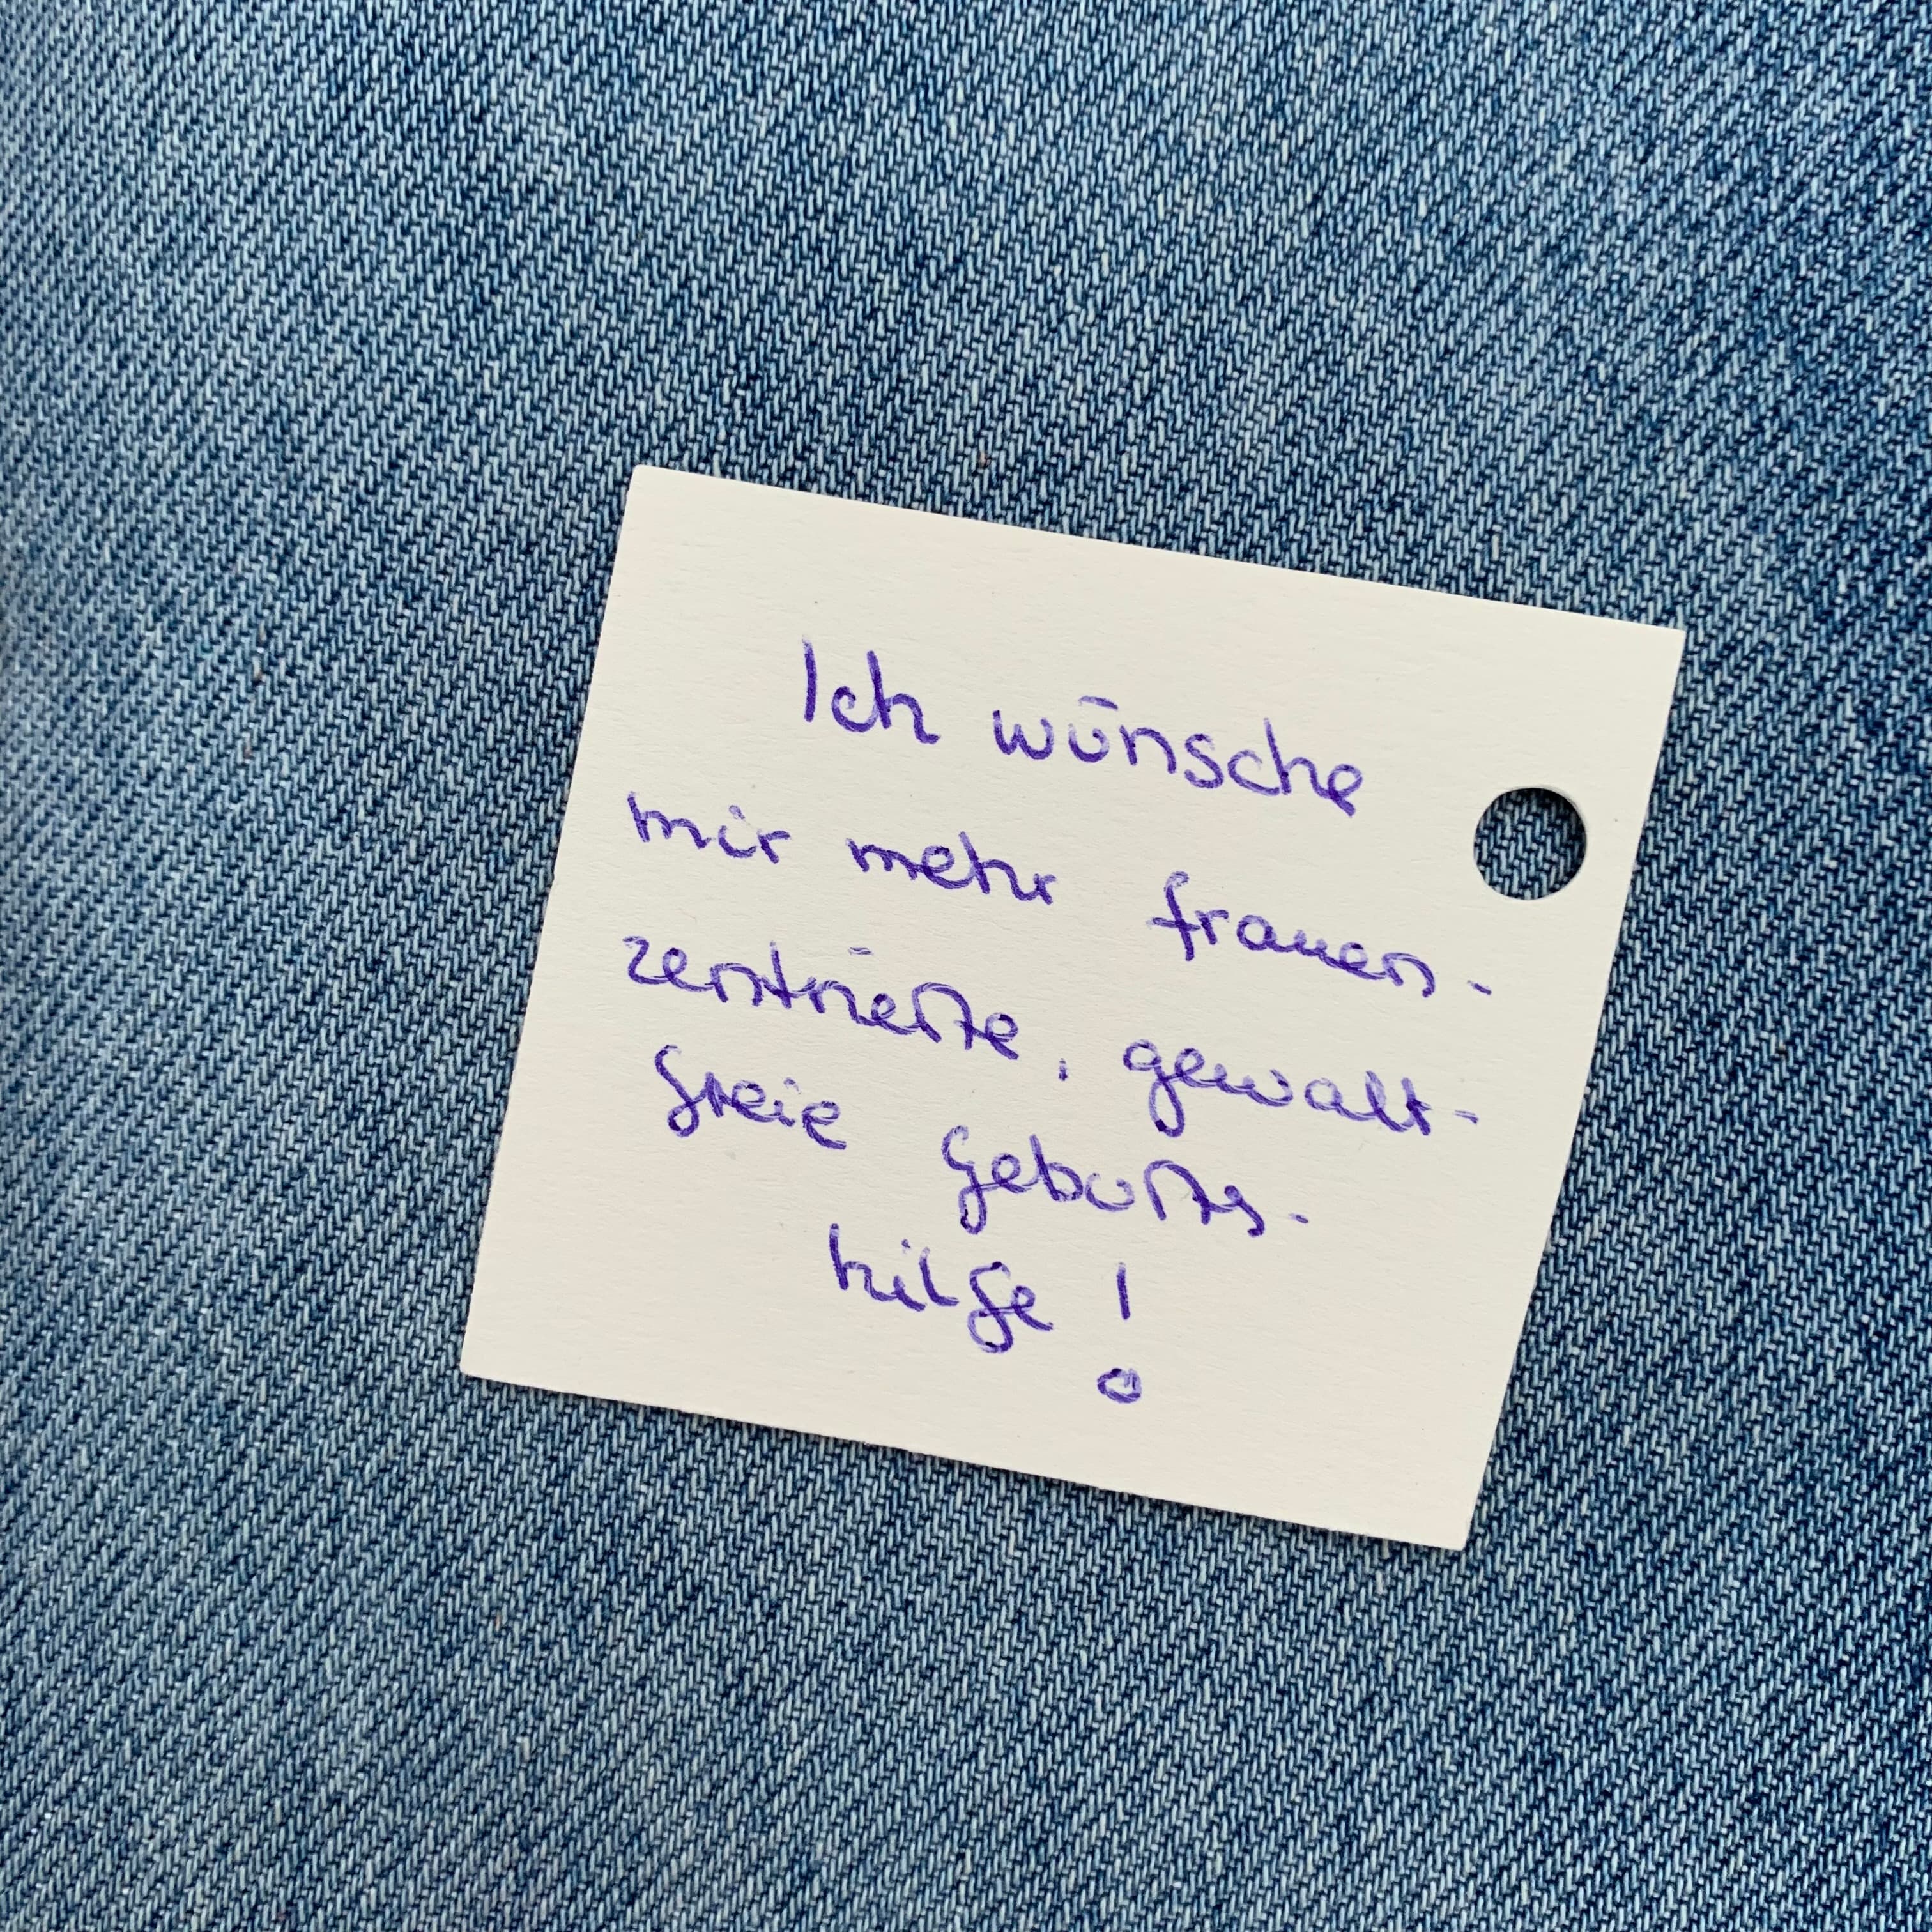 Ich wünsche
mir mehr frauen-
zentrierte, gewalt-
freie Geburts-
hilfe!